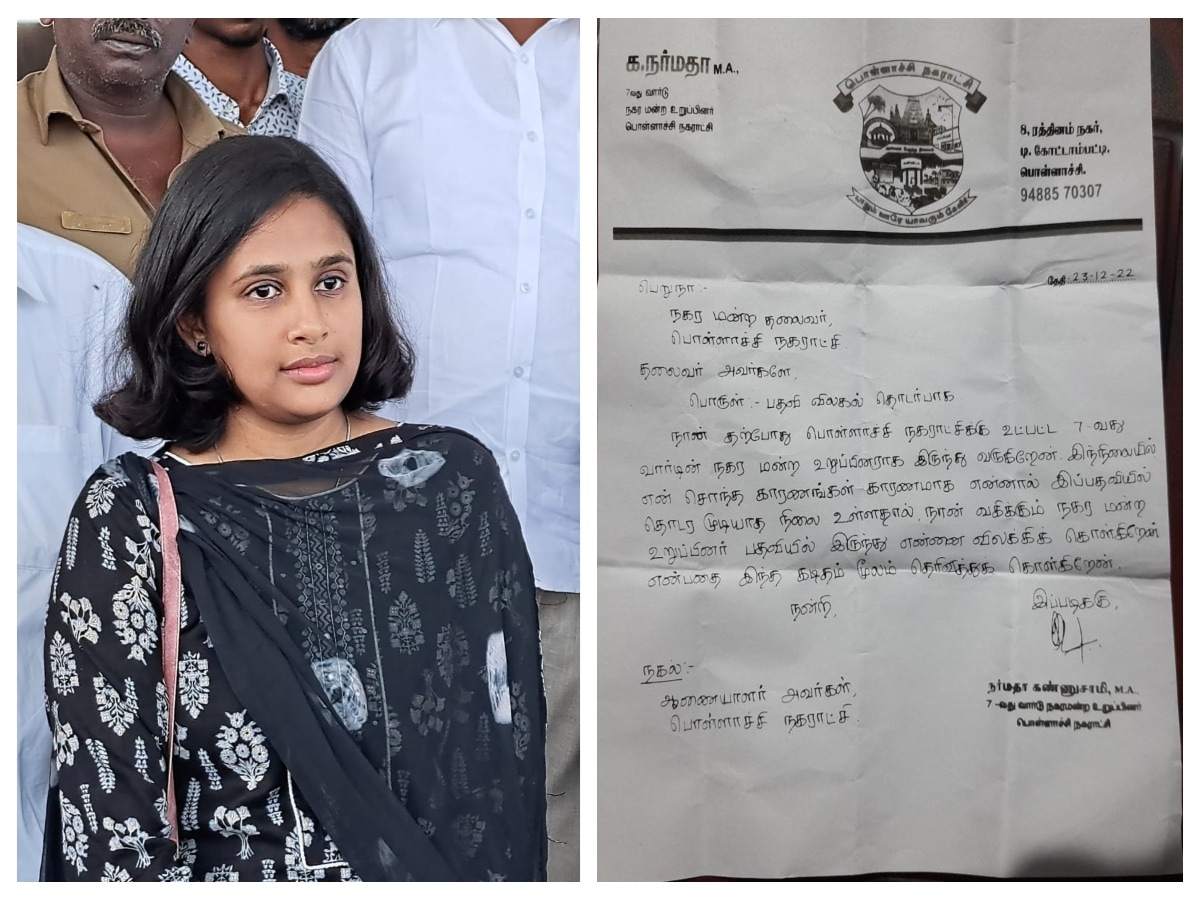 க.நர்மதா M.A.,
7வது வார்டு
நகர மன்ற உறுப்பினர்
பொள்ளாச்சி நகராட்சி
பொள்ளாச்சி நகராட்சி
யாதும் ஊரே யாவரும் கேளிர்
8, ரத்தினம் நகர்,
டி. கோட்டாம்பட்டி,
பொள்ளாச்சி.
94885 70307
தேதி 23-12-22
பெறுநர் :-
நகர மன்ற தலைவர்,
பொள்ளாச்சி நகராட்சி.
தலைவர் அவர்களே,
பொருள் :- பதவி விலகல் தொடர்பாக
நான் தற்போது பொள்ளாச்சி நகராட்சிக்கு உட்பட்ட 7-வது
வார்டின் நகர மன்ற உறுப்பினராக இருந்து வருகிறேன். இந்நிலையில்
என் சொந்த காரணங்கள் காரணமாக என்னால் இப்பதவியில்
தொடர முடியாத நிலை உள்ளதால், நான் வகிக்கும் நகர மன்ற
உறுப்பினர் பதவியில் இருந்து என்னை விலக்கிக் கொள்கிறேன்
என்பதை இந்த கடிதம் மூலம் தெரிவித்துக் கொள்கிறேன்.
நன்றி,
இப்படிக்கு,
நகல் :-
ஆணையாளர் அவர்கள்,
பொள்ளாச்சி நகராட்சி.
நர்மதா கண்ணுசாமி, M.A.,
7 -வது வார்டு நகரமன்ற உறுப்பினர்
பொள்ளாச்சி நகராட்சி